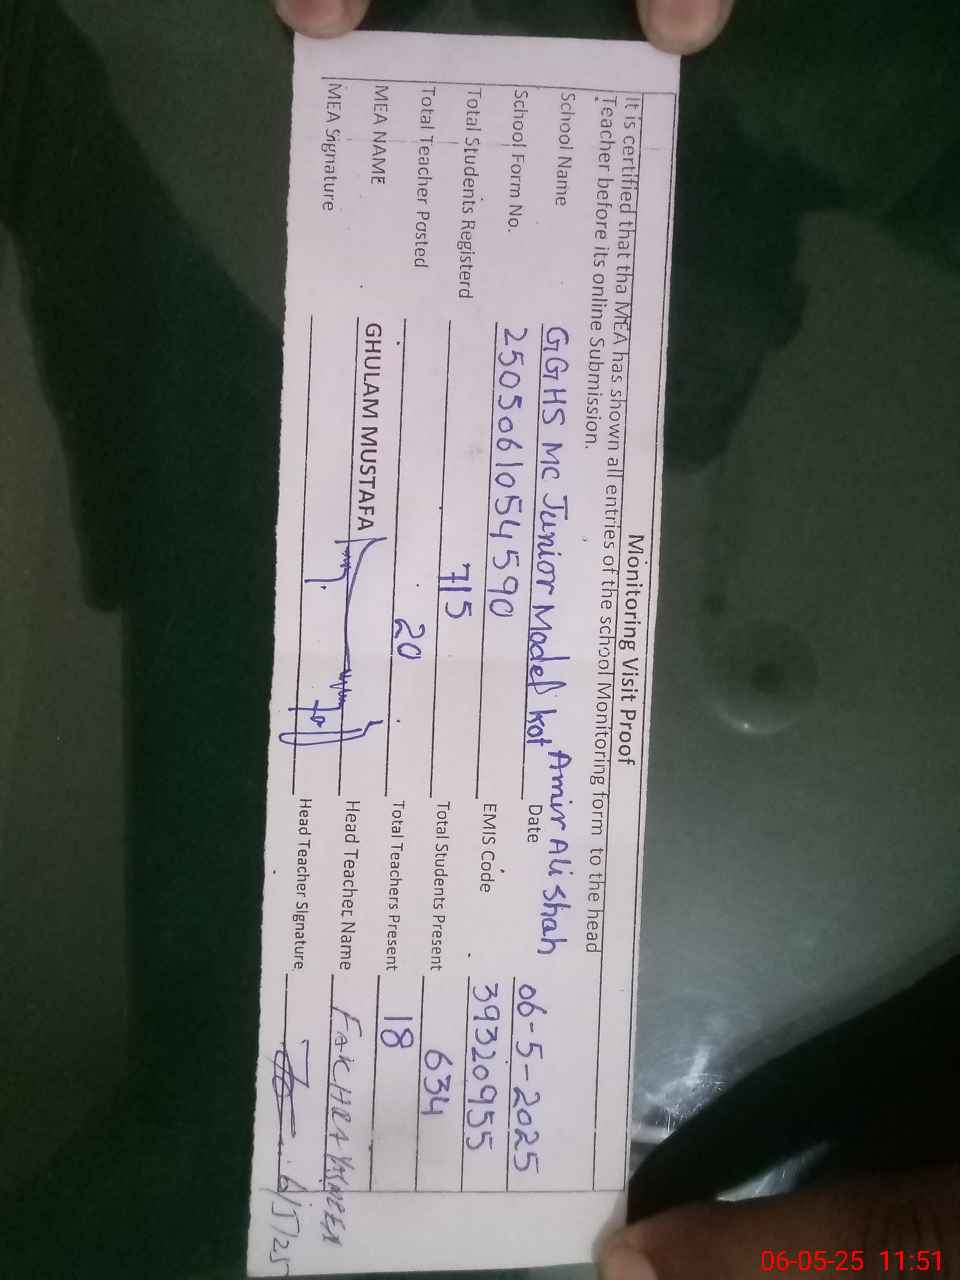 Monitoring Visit Proof
It is certified that tha MEA has shown all entries of the school Monitoring form to the head
Teacher before its online Submission.
School Name GGHS MC Junior Model Kot Amir Ali Shah Date 06-5-2025
School Form No. 2505061054590 EMIS Code 39320955
Total Students Registerd 715 Total Students Present 634
Total Teacher Posted 20 Total Teachers Present 18
MEA NAME GHULAM MUSTAFA Head Teacher Name FAKHRA YASMEEN
MEA Signature Head Teacher Signature 6/5/25
06-05-25 11:51